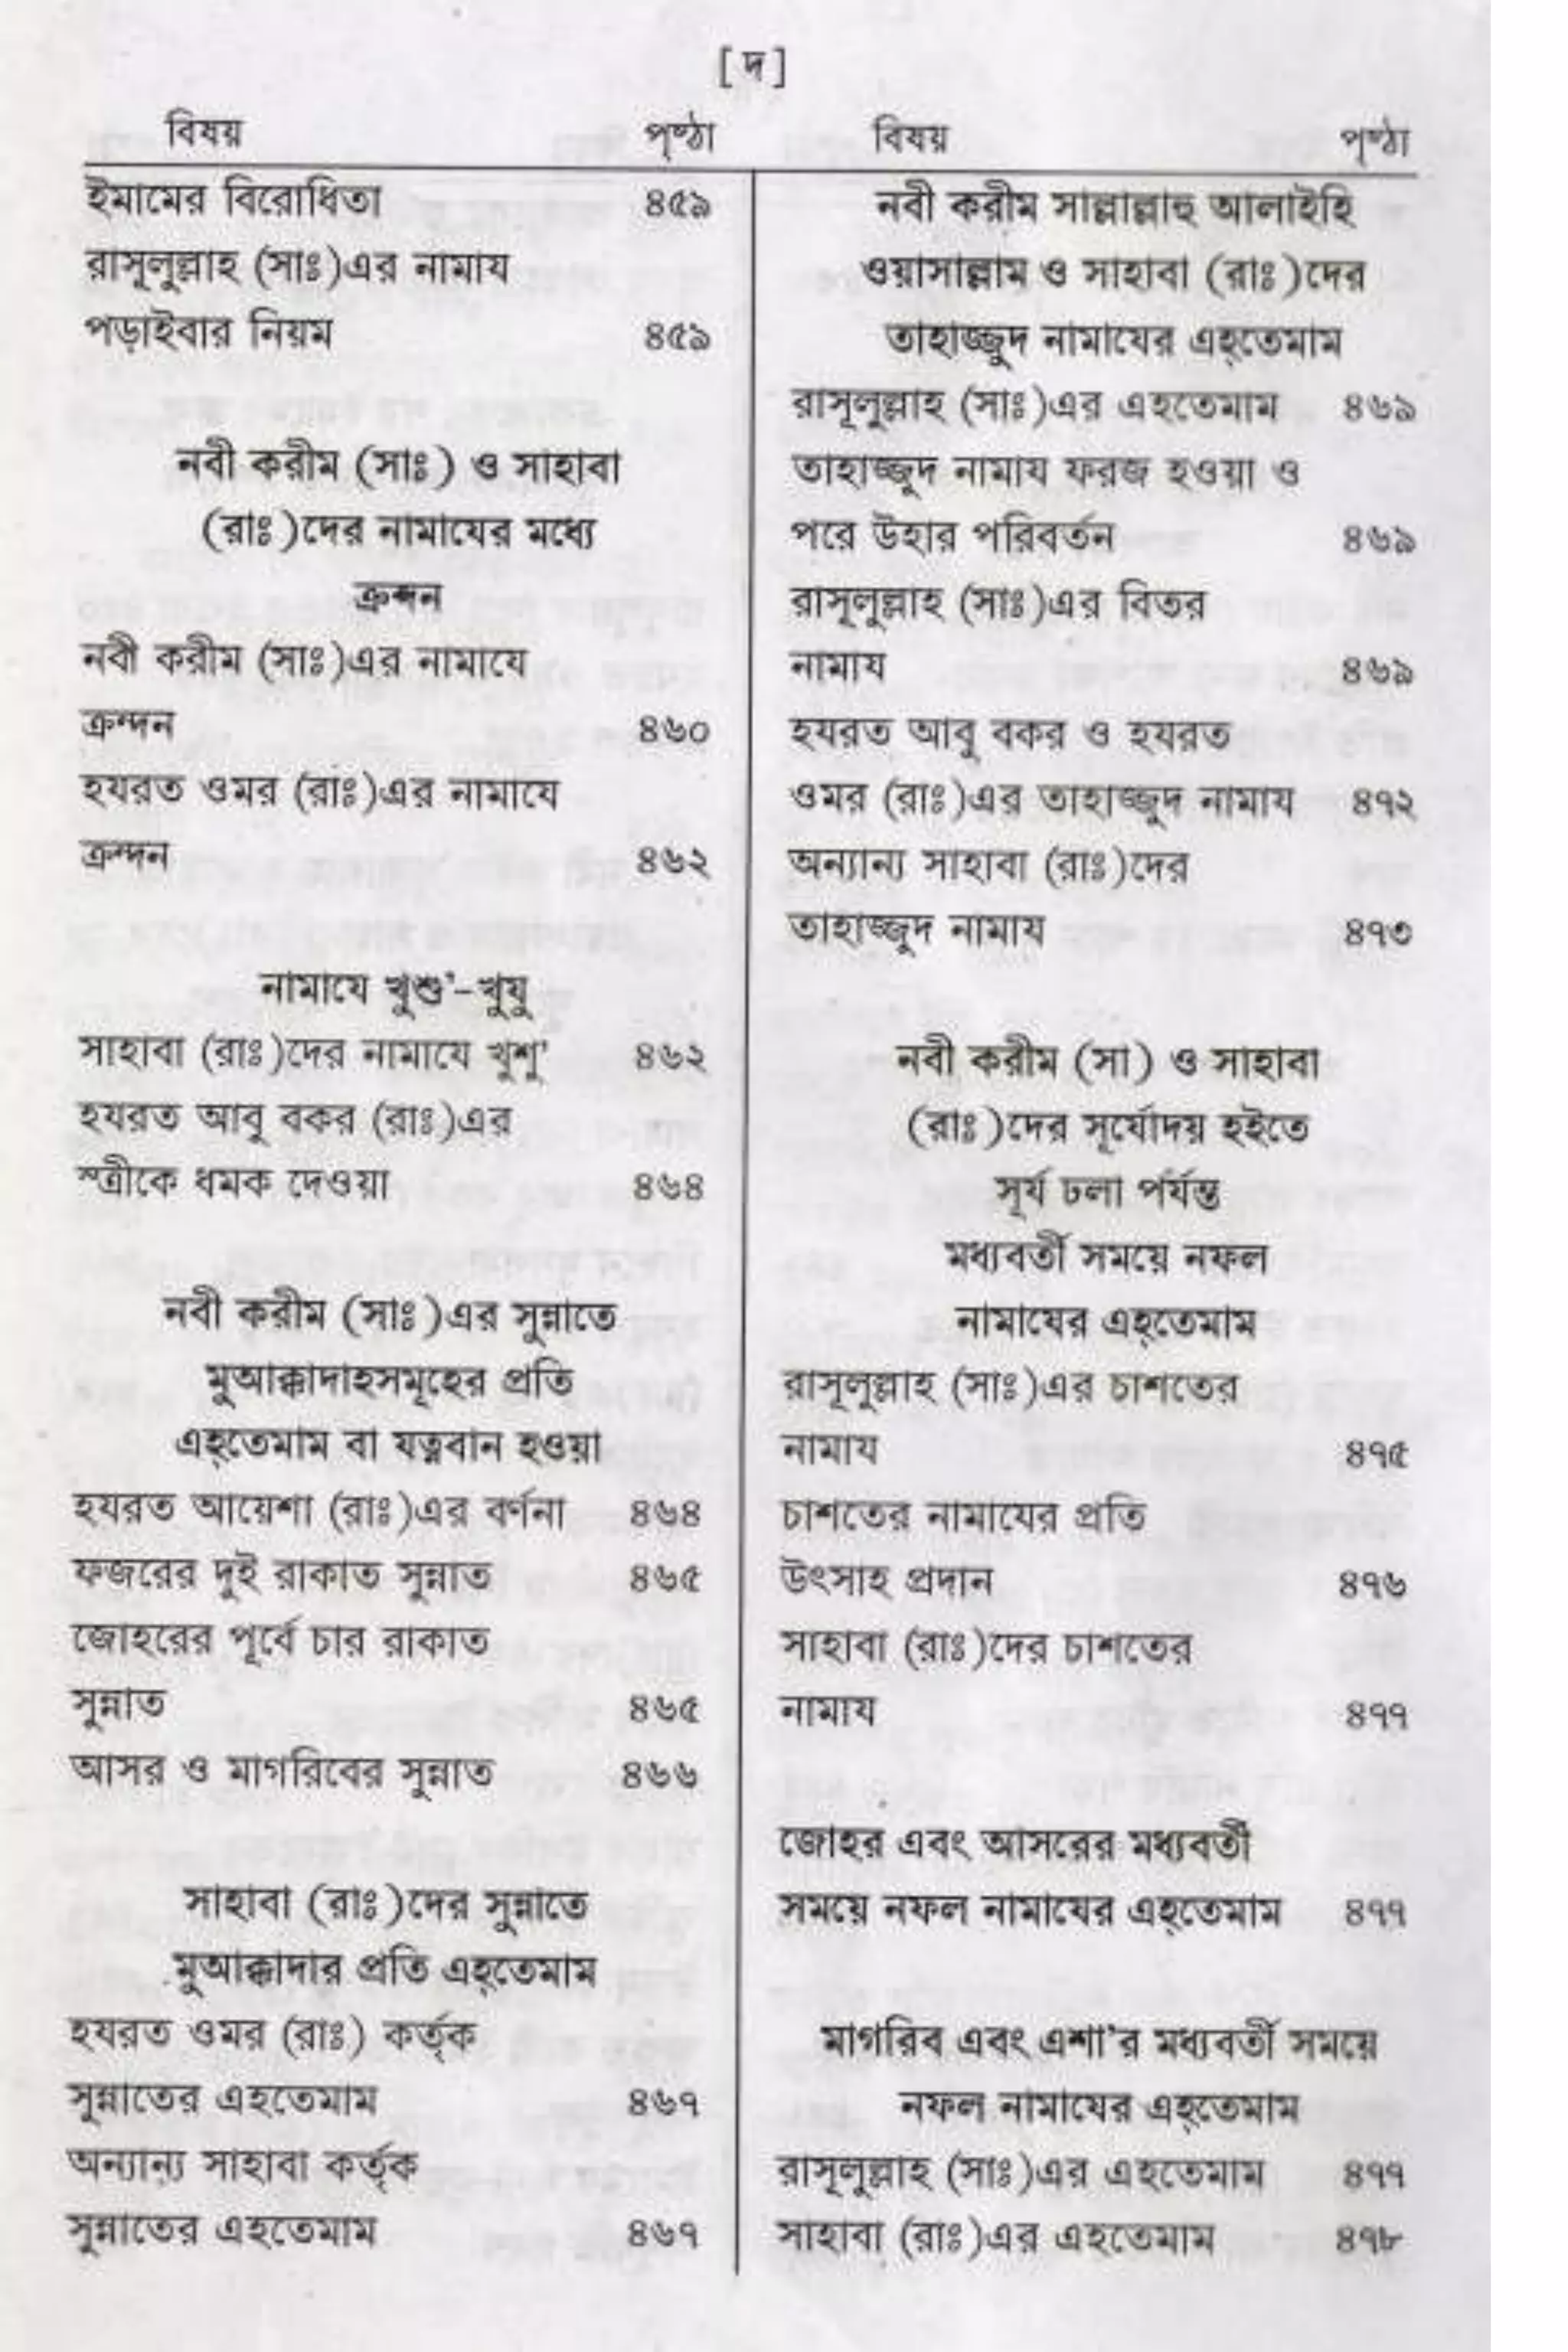 [ দ ]
বিষয় পৃষ্ঠা
ইমামের বিরোধিতা ৪৫৯
রাসূলুল্লাহ (সাঃ)এর নামায
পড়াইবার নিয়ম ৪৫৯
নবী করীম (সাঃ) ও সাহাবা
(রাঃ)দের নামাযের মধ্যে
ক্রন্দন
নবী করীম (সাঃ)এর নামাযে
ক্রন্দন ৪৬০
হযরত ওমর (রাঃ)এর নামাযে
ক্রন্দন ৪৬২
নামাযে খুশু'-খুযু
সাহাবা (রাঃ)দের নামাযে খুশু' ৪৬২
হযরত আবু বকর (রাঃ)এর
স্ত্রীকে ধমক দেওয়া ৪৬৪
নবী করীম (সাঃ)এর সুন্নাতে
মুআক্কাদাহসমূহের প্রতি
এহ্‌তেমাম বা যত্নবান হওয়া
হযরত আয়েশা (রাঃ)এর বর্ণনা ৪৬৪
ফজরের দুই রাকাত সুন্নাত ৪৬৫
জোহরের পূর্বে চার রাকাত
সুন্নাত ৪৬৫
আসর ও মাগরিবের সুন্নাত ৪৬৬
সাহাবা (রাঃ)দের সুন্নাতে
মুআক্কাদার প্রতি এহ্‌তেমাম
হযরত ওমর (রাঃ) কর্তৃক
সুন্নাতের এহতেমাম ৪৬৭
অন্যান্য সাহাবা কর্তৃক
সুন্নাতের এহতেমাম ৪৬৭
বিষয় পৃষ্ঠা
নবী করীম সাল্লাল্লাহু আলাইহি
ওয়াসাল্লাম ও সাহাবা (রাঃ)দের
তাহাজ্জুদ নামাযের এহ্‌তেমাম
রাসূলুল্লাহ (সাঃ)এর এহতেমাম ৪৬৯
তাহাজ্জুদ নামায ফরজ হওয়া ও
পরে উহার পরিবর্তন ৪৬৯
রাসূলুল্লাহ (সাঃ)এর বিতর
নামায ৪৬৯
হযরত আবু বকর ও হযরত
ওমর (রাঃ)এর তাহাজ্জুদ নামায ৪৭২
অন্যান্য সাহাবা (রাঃ)দের
তাহাজ্জুদ নামায ৪৭৩
নবী করীম (সা) ও সাহাবা
(রাঃ)দের সূর্যোদয় হইতে
সূর্য ঢলা পর্যন্ত
মধ্যবর্তী সময়ে নফল
নামাযের এহ্‌তেমাম
রাসূলুল্লাহ (সাঃ)এর চাশতের
নামায ৪৭৫
চাশতের নামাযের প্রতি
উৎসাহ প্রদান ৪৭৬
সাহাবা (রাঃ)দের চাশতের
নামায ৪৭৭
জোহর এবং আসরের মধ্যবর্তী
সময়ে নফল নামাযের এহ্‌তেমাম ৪৭৭
মাগরিব এবং এশা'র মধ্যবর্তী সময়ে
নফল নামাযের এহ্‌তেমাম
রাসূলুল্লাহ (সাঃ)এর এহতেমাম ৪৭৭
সাহাবা (রাঃ)এর এহতেমাম ৪৭৮